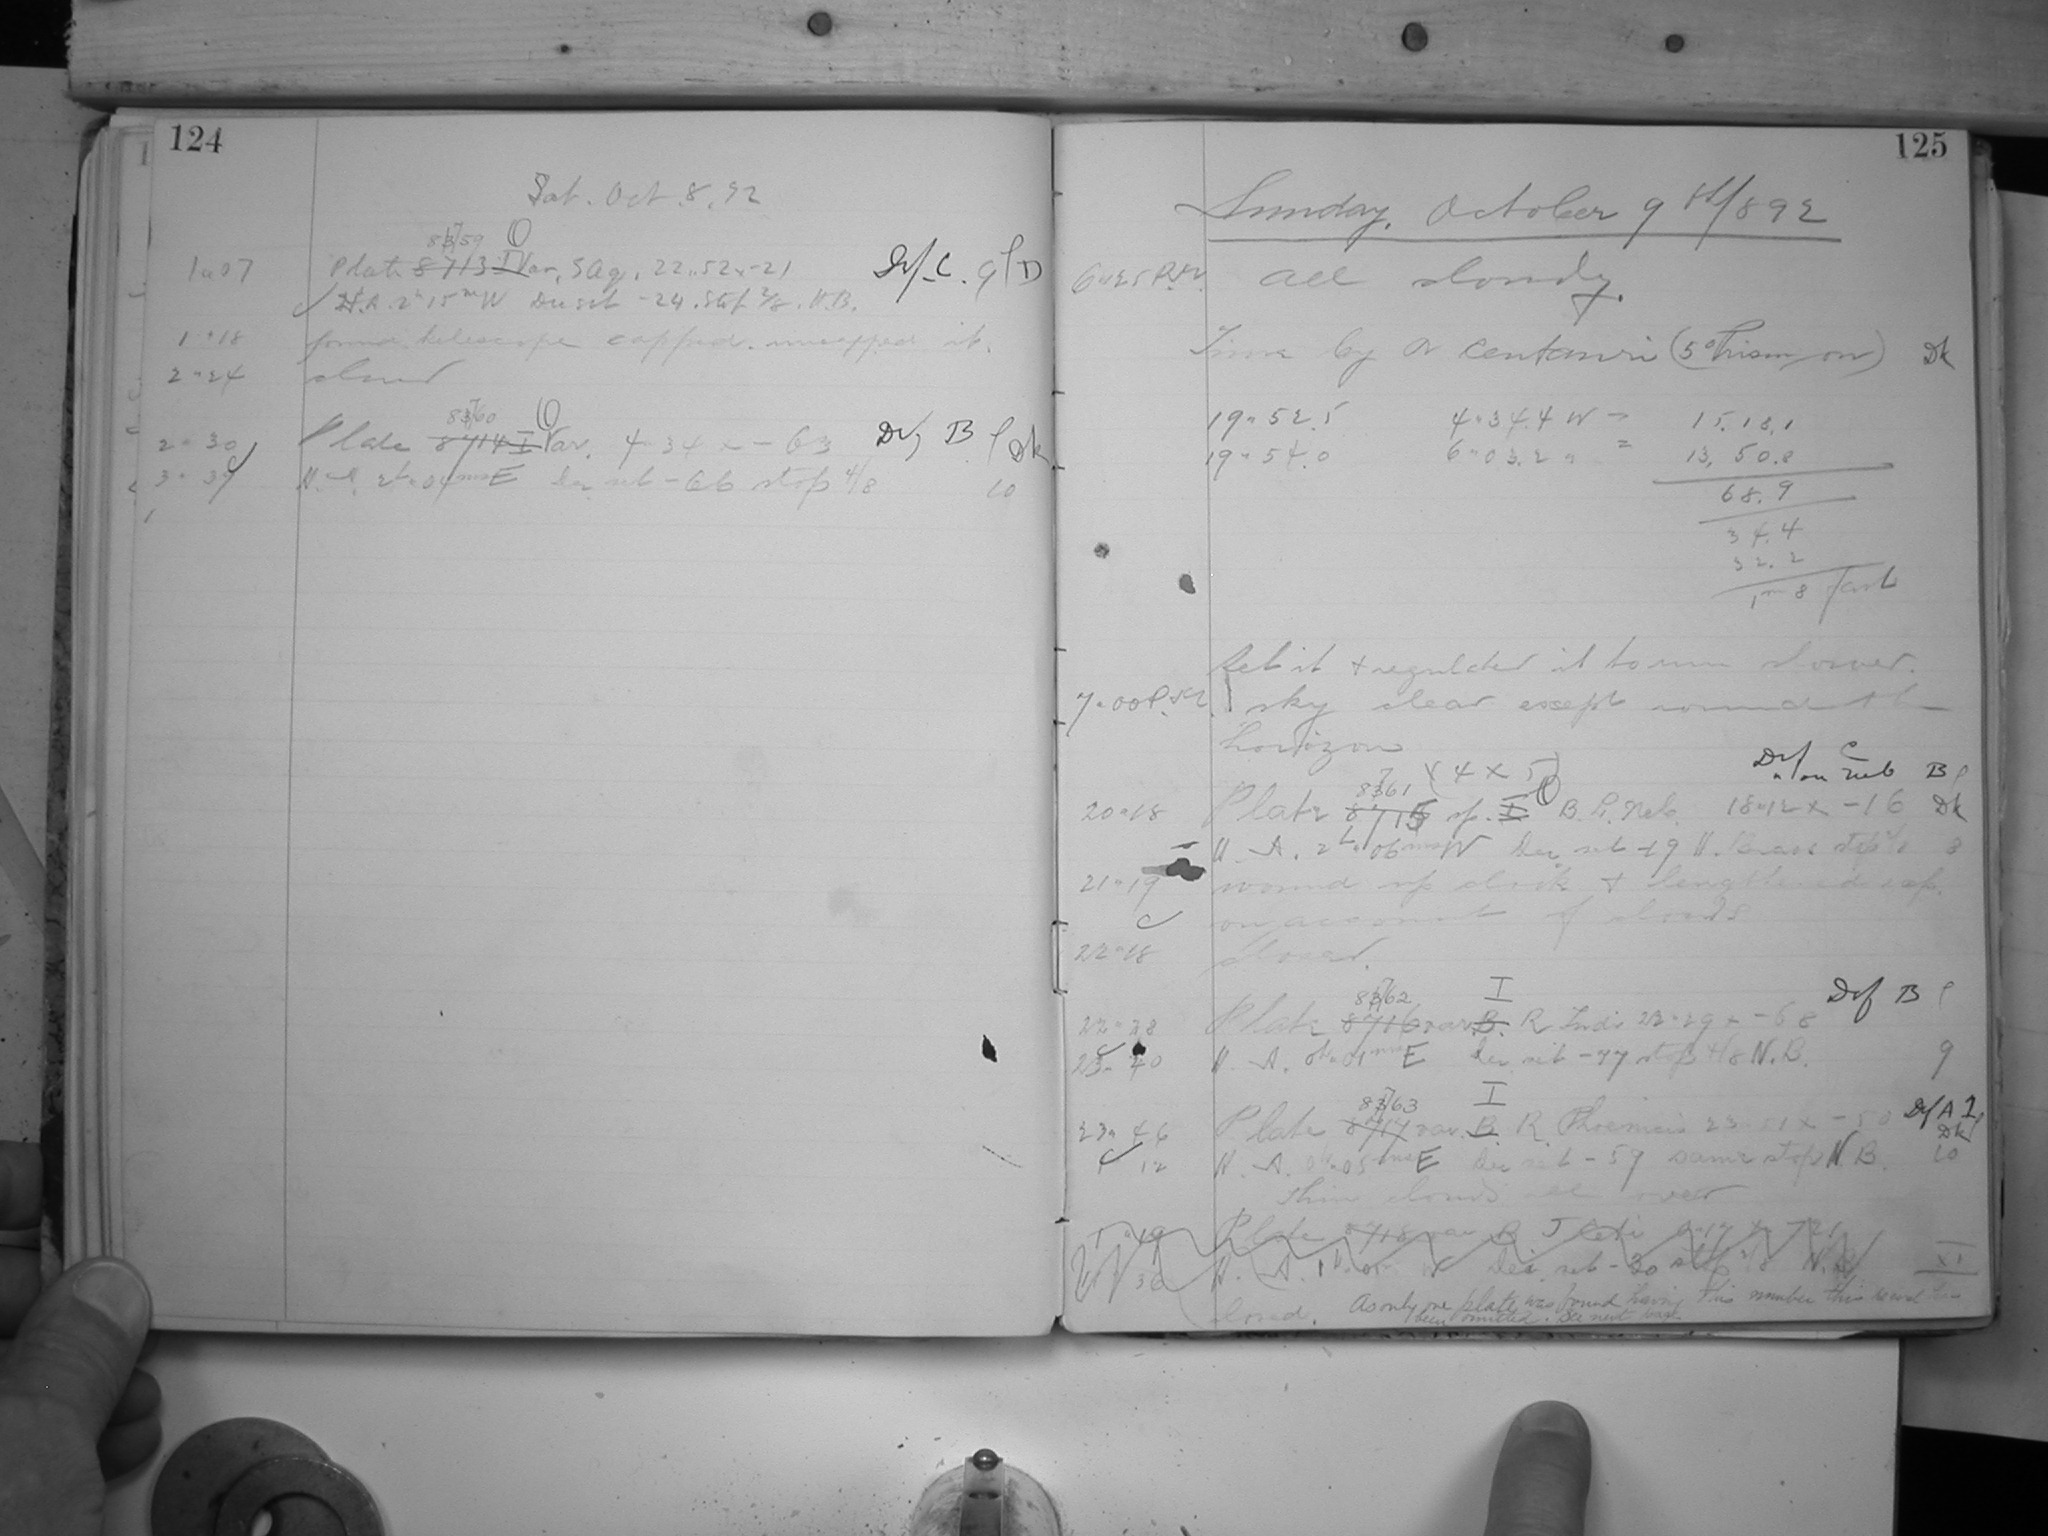 124
Sat. Oct. 8. 92
8759
1 07 Plate 8713 I Var. S Aq. 22.52 x -21 Def. C. 9 D
H.A. 2h 15m W Dec set -24. Stop 2/8. N.B.
1 18 found telescope capped. uncapped it.
2 24 closed
8760
2 30 Plate 8714 I Var. 4 34 x -63 Def B Dk
3 39 H. A. 2h 04m E Dec set -66 stop 4/8 10
125
Sunday, October 9th 1892
6 25 P.M. all cloudy.
Time by α Centauri (5° Prism on) Dk
19 52.5 4 34.4 W = 15.18.1
19 54.0 6 03.2 " = 13.50.8
68.9
34.4
32.2
1m 8 fast
Set it & regulated it to run slower.
7 00 P.M. sky clear except round the
horizon
(4 x 5) Def C
8761 " on neb B
20 18 Plate 8715 sp. I B. L. Neb. 18 12 x -16 Dk
H. A. 2h 06m W Dec set -19 8
21 19 wound up clock & lengthened exp.
on account of clouds
22 18 closed.
8762 I Def B
22 28 Plate 8716 var. B. R Indi 22 29 x -68
23 40 H. A. 0h 01m E Dec set -77 stop 4/8 N.B. 9
8763 I
23 46 Plate 8717 var. B. R. Phoenicis 23 51 x -50 Def A I Dk
1 12 H. A. 0h 05m E Dec set -59 same stop N.B. 10
Thin clouds all over
1 19 Plate 8718 var B
H. A. 1h W Dec set -30 stop N.B.
closed. As only one plate was found having this number this record has
been omitted. See next page.